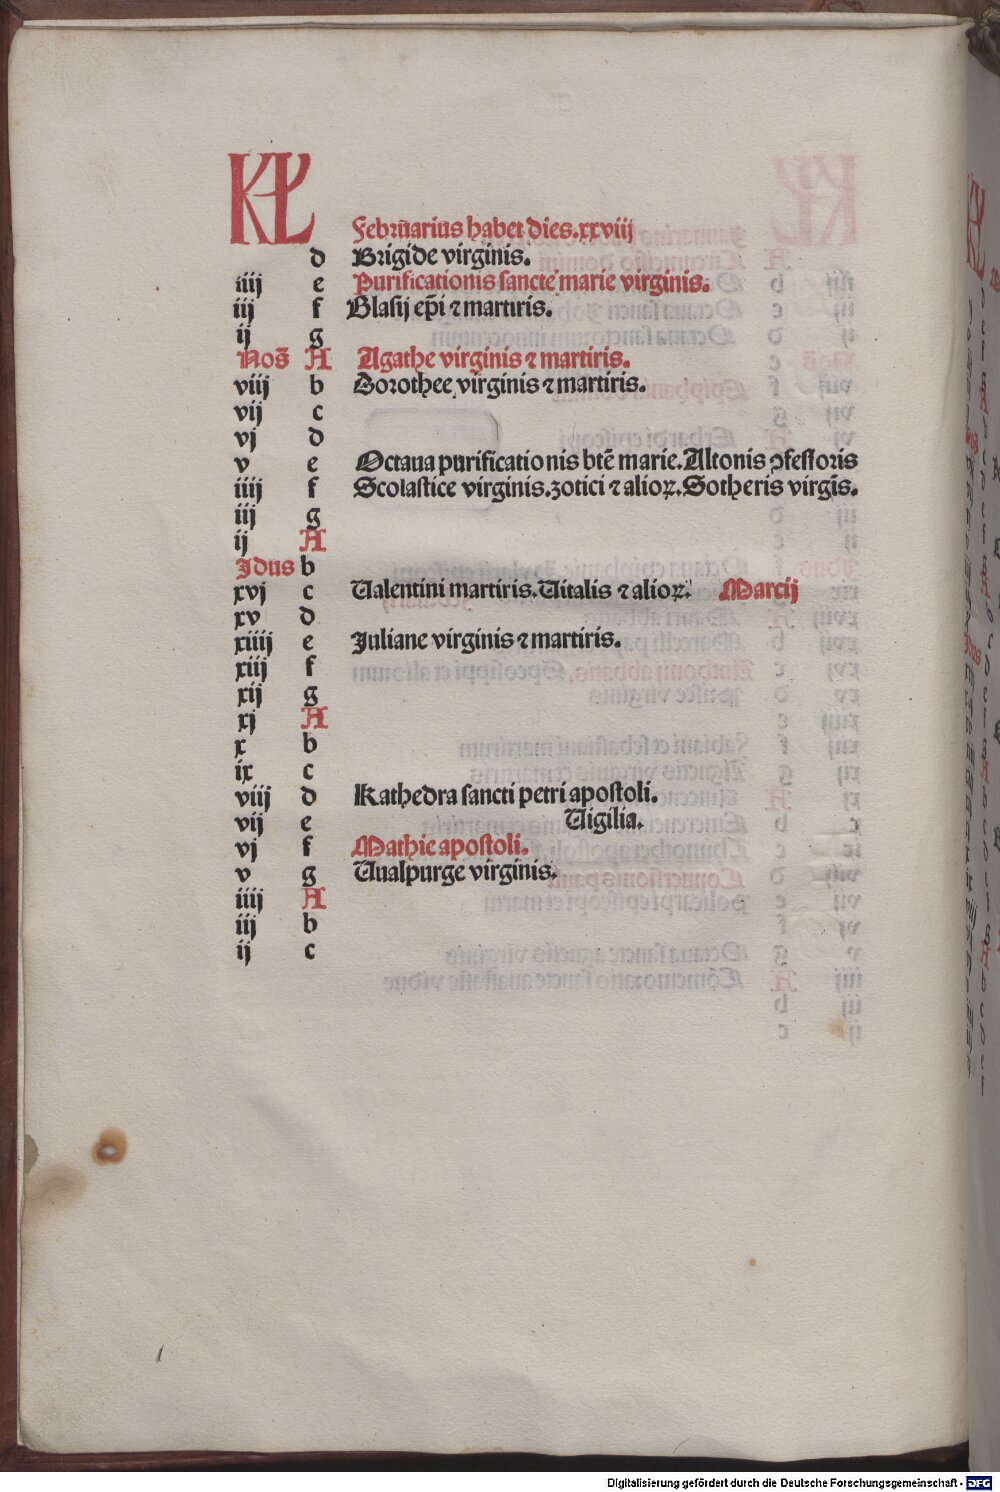 KL Februarius habet dies.xxviij
d Brigide virginis.
iiij e Purificationis sancte marie virginis.
iij f Blasij ep̄i ⁊ martiris.
ij g
Nos̄ A Agathe virginis ⁊ martiris.
viij b Dorothee virginis ⁊ martiris.
vij c
vj d
v e Octaua purificationis btē marie.Altonis ꝯfessoris
iiij f Scolastice virginis.zotici ⁊ alioꝝ.Sotheris virgīs.
iij g
ij A
Idus b
xvj c Ualentini martiris.Uitalis ⁊ alioꝝ. Marcij
xv d
xiiij e Juliane virginis ⁊ martiris.
xiij f
xij g
xj A
x b
ix c
viij d Kathedra sancti petri apostoli.
vij e Uigilia.
vj f Mathie apostoli.
v g Uualpurge virginis.
iiij A
iij b
ij c
Digitalisierung gefördert durch die Deutsche Forschungsgemeinschaft - DFG